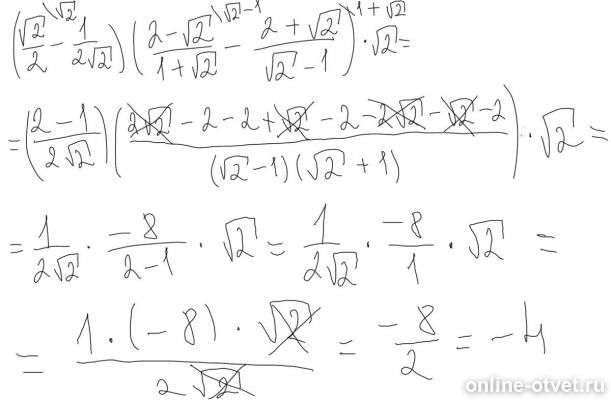 (√2/2 \√2 - 1/2√2) (2-√2/1+√2 \√2-1 - 2+√2/√2-1 \1+√2) · √2 =
= (2-1/2√2) (2√2 - 2 - 2 + √2 - 2 - 2√2 - √2 - 2/(√2-1)(√2+1)) · √2 =
= 1/2√2 · -8/2-1 · √2 = 1/2√2 · -8/1 · √2 =
= 1·(-8)·√2/2√2 = -8/2 = -4
online-otvet.ru